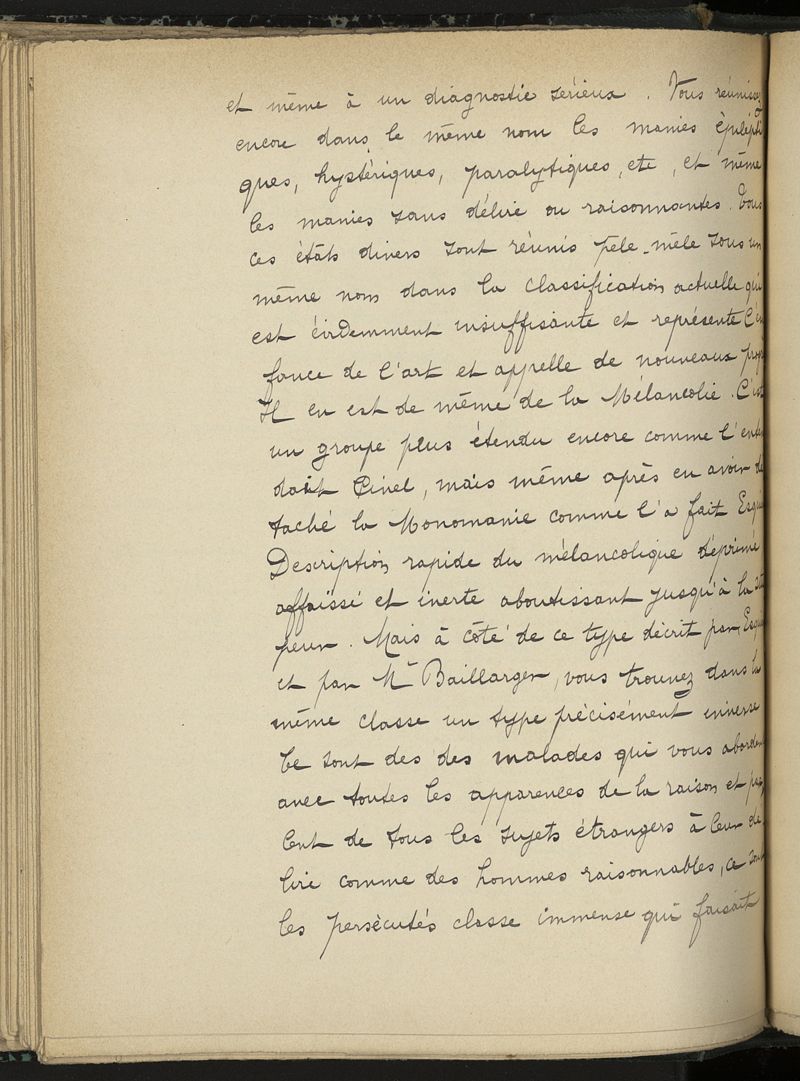 et même à un diagnostic sérieux. Vous réunissez
encore dans le même nom les manies épilepti
ques, hystériques, paralytiques, etc, et même
les manies sans délire ou raisonnantes. Tous
ces états divers sont réunis pêle-mêle sous un
même nom dans la classification actuelle qui
est évidemment insuffisante et représente l'en
fance de l'art et appelle de nouveaux progr
Il en est de même de la Mélancolie. C'est
un groupe plus étendu encore comme l'enten
dait Pinel, mais même après en avoir dé
taché la Monomanie comme l'a fait Esqui
Description rapide du mélancolique déprimé
affaissé et inerte aboutissant jusqu'à la stu
peur. Mais à côté de ce type décrit par Esqui
et par Mr Baillarger, vous trouvez dans la
même classe un type précisément inverse
Ce sont des des malades qui vous abordent
avec toutes les apparences de la raison et par
lent de tous les sujets étrangers à leur dé
lire comme des hommes raisonnables, ce sont
les persécutés classe immense qui faisait